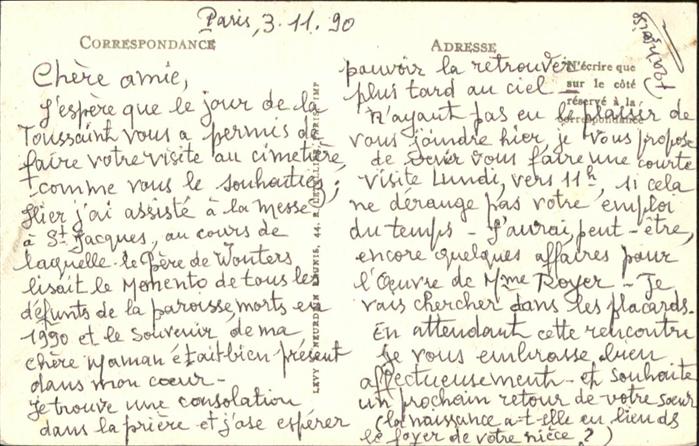 Paris, 3.11.90
français
CORRESPONDANCE
Chère amie,
J'espère que le jour de la
Toussaint vous a permis de
faire votre visite au cimetière,
comme vous le souhaitiez;
Hier j'ai assisté à la messe
à St Jacques, au cours de
laquelle le Père de Wouters
lisait le Memento de tous les
défunts de la paroisse, morts en
1990 et le souvenir de ma
chère Maman était bien présent
dans mon coeur -
Je trouve une consolation
dans la prière et j'ose espérer
LEVY ET NEURDEIN RÉUNIS, 44, R. LETELLIER, PARIS IMP
ADRESSE
N'écrire que
sur le côté
réservé à la
correspondance
pouvoir la retrouver
plus tard au ciel -
N'ayant pas eu le plaisir de
vous joindre hier, je vous propose
de venir vous faire une courte
visite Lundi, vers 11h, si cela
ne dérange pas votre emploi
du temps - J'aurai, peut-être,
encore quelques affaires pour
l'Œuvre de Mme Royer - Je
vais chercher dans les placards.
En attendant cette rencontre
je vous embrasse bien
affectueusement - et souhaite
un prochain retour de votre soeur
(la naissance a-t-elle eu lieu ds
le foyer de votre nièce?)